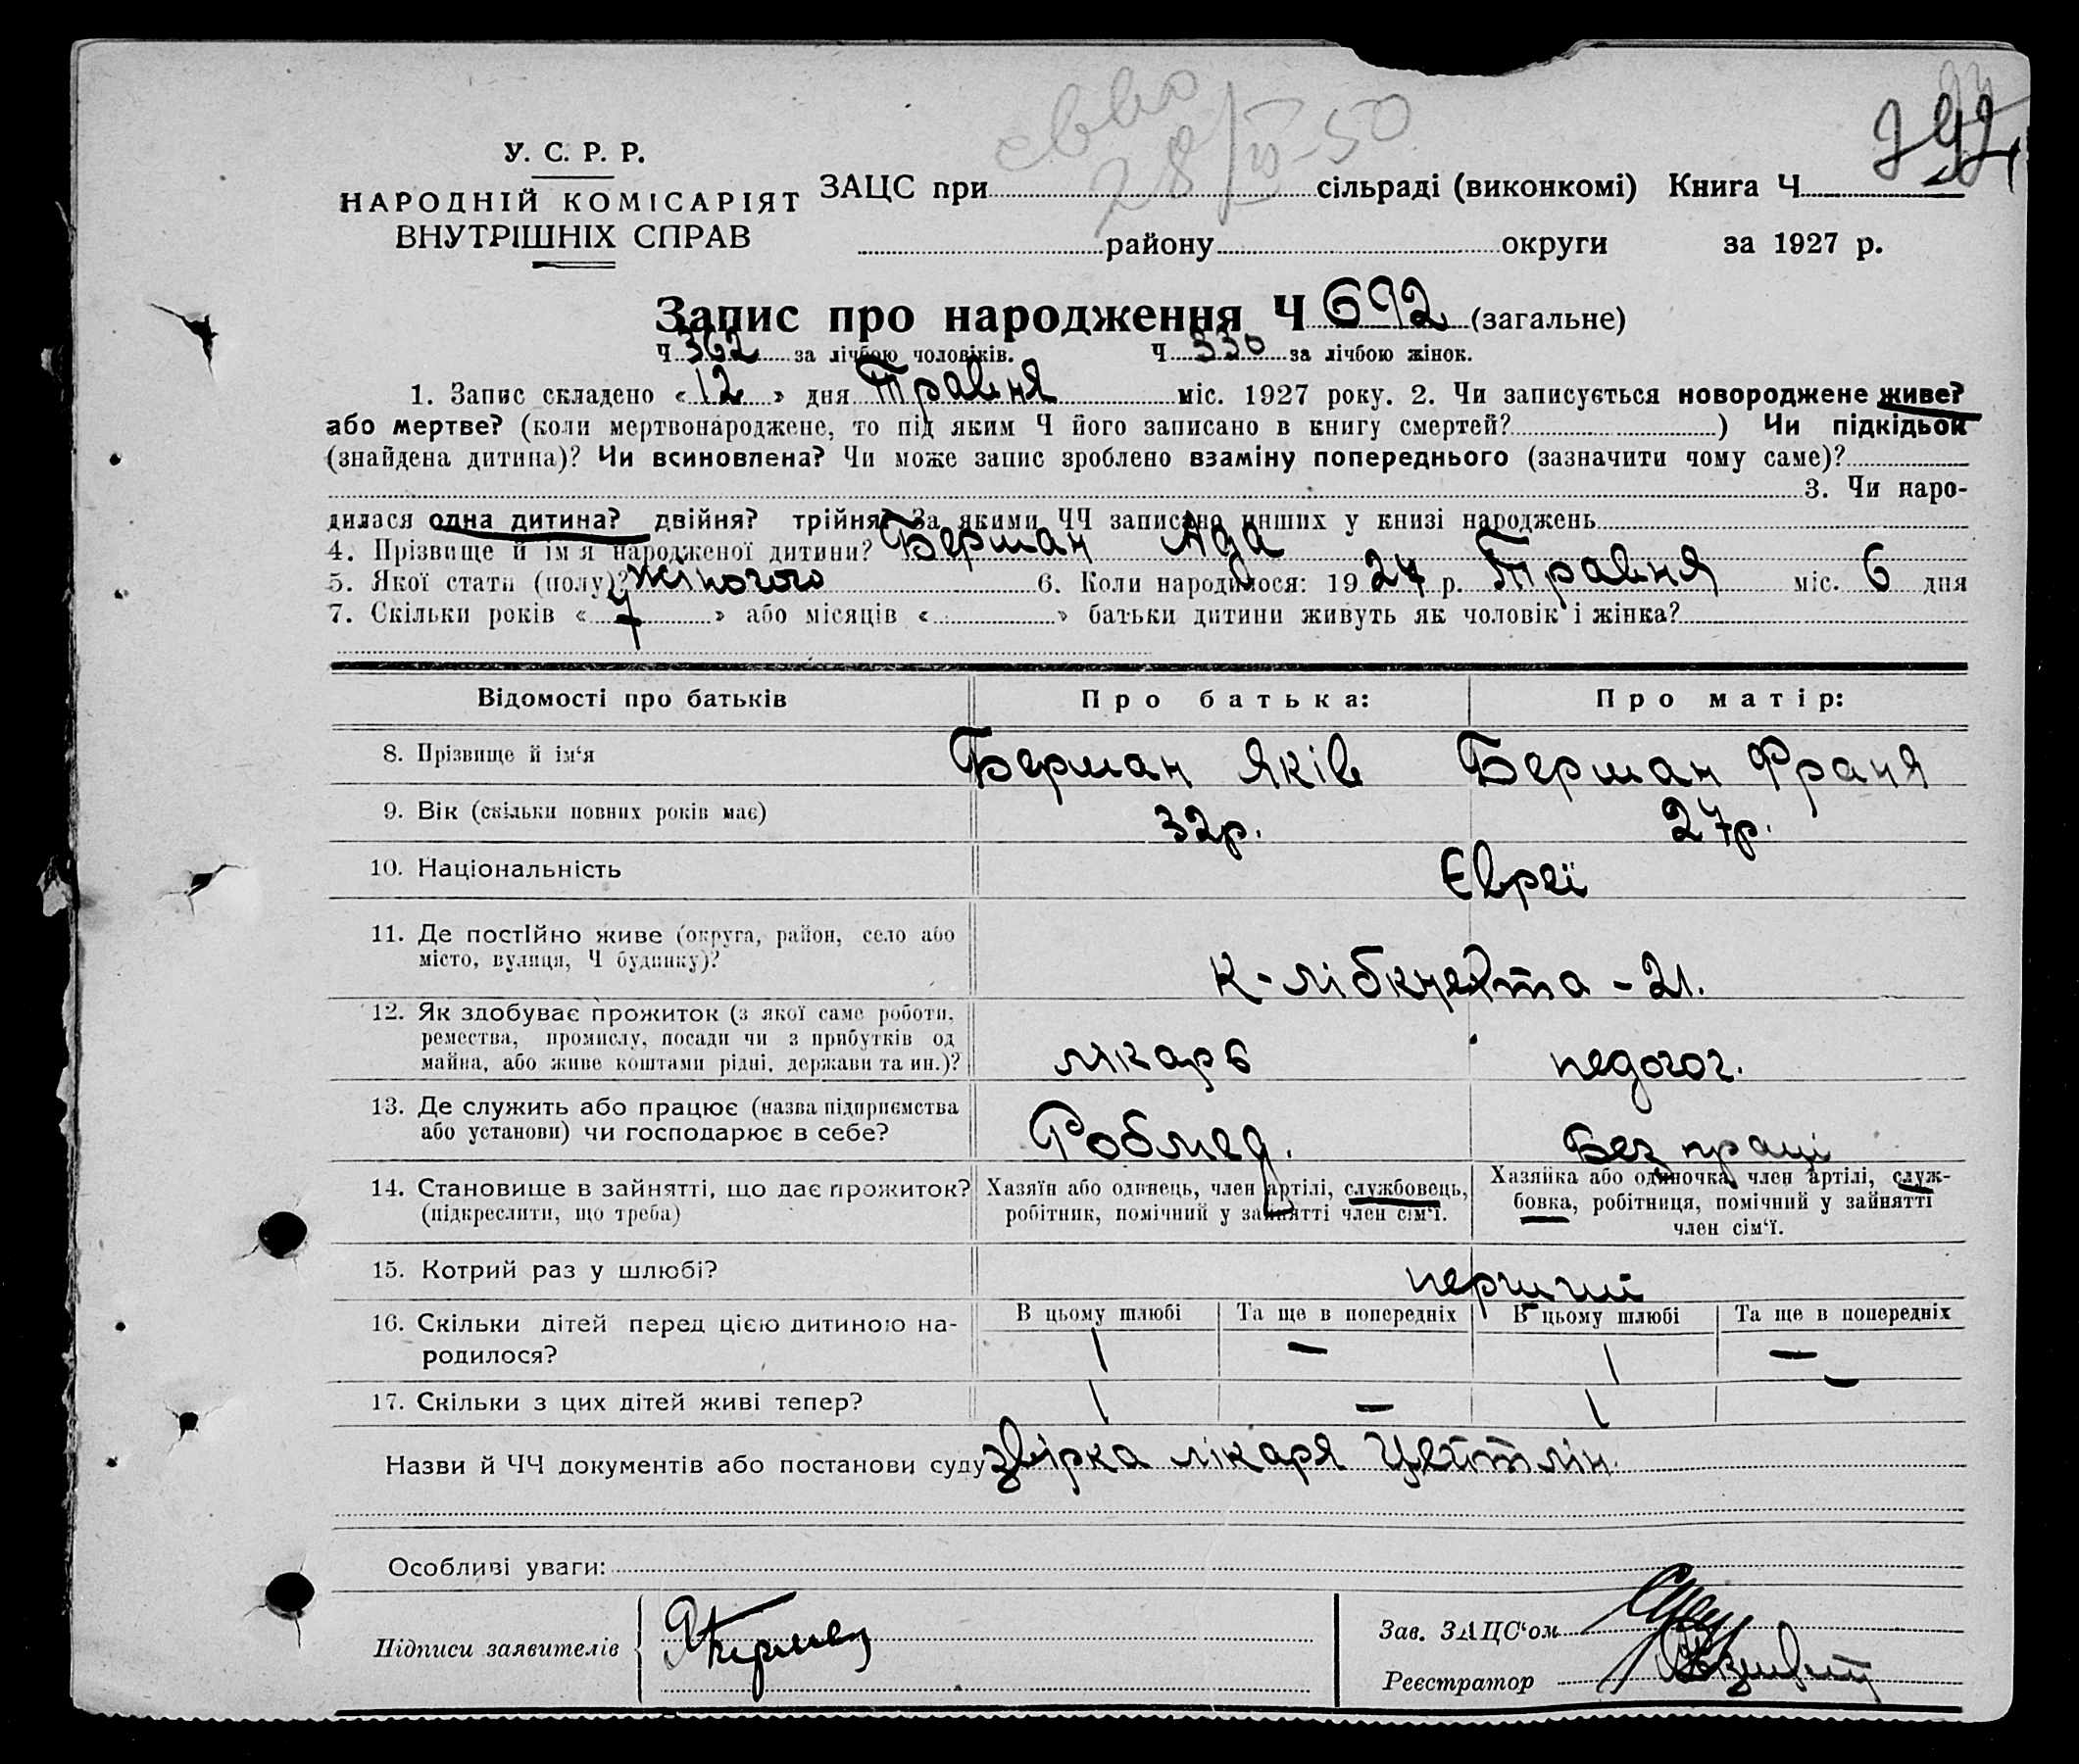 28/IV-50
У. С. Р. Р.
НАРОДНІЙ КОМІСАРІЯТ
ВНУТРІШНІХ СПРАВ
ЗАЦС при сільраді (виконкомі) Книга Ч
району округи за 1927 р.
Запис про народження Ч 692 (загальне)
Ч 362 за лічбою чоловіків. Ч 330 за лічбою жінок.
1. Запис складено « 12 » дня Травня міс. 1927 року. 2. Чи записується новороджене живе?
або мертве? (коли мертвонароджене, то під яким Ч його записано в книгу смертей? ) Чи підкідьок
(знайдена дитина)? Чи всиновлена? Чи може запис зроблено взаміну попереднього (зазначити чому саме)?
3. Чи наро-
дилася одна дитина? двійня? трійня? За якими ЧЧ записано инших у книзі народжень
4. Прізвище й ім'я народженої дитини? Берман Ада
5. Якої стати (полу)? жіночого 6. Коли народилося: 19 27 р. Травня міс. 6 дня
7. Скільки років « 7 » або місяців « » батьки дитини живуть як чоловік і жінка?
Відомості про батьків Про батька: Про матір:
8. Прізвище й ім'я Берман Яків Берман Франя
9. Вік (скільки повних років має) 32р. 27р.
10. Національність Євреї
11. Де постійно живе (округа, район, село або
місто, вулиця, Ч будинку)? К-Лібкнехта - 21.
12. Як здобуває прожиток (з якої саме роботи,
ремества, промислу, посади чи з прибутків од
майна, або живе коштами рідні, держави та ин.)? лікарь педогог.
13. Де служить або працює (назва підприємства
або установи) чи господарює в себе? Робмед. Без праці
14. Становище в зайнятті, що дає прожиток?
(підкреслити, що треба)
Хазяїн або одинець, член артілі, службовець,
робітник, помічний у зайнятті член сім'ї.
Хазяйка або одиночка, член артілі, служ-
бовка, робітниця, помічний у зайнятті
член сім'ї.
15. Котрий раз у шлюбі? перший
16. Скільки дітей перед цією дитиною на-
родилося?
В цьому шлюбі Та ще в попередніх В цьому шлюбі Та ще в попередніх
1 — 1 —
17. Скільки з цих дітей живі тепер? 1 — 1 —
Назви й ЧЧ документів або постанови суду звірка лікаря Цейтлін.
Особливі уваги:
Підписи заявителів
Зав. ЗАЦС'ом
Реєстратор